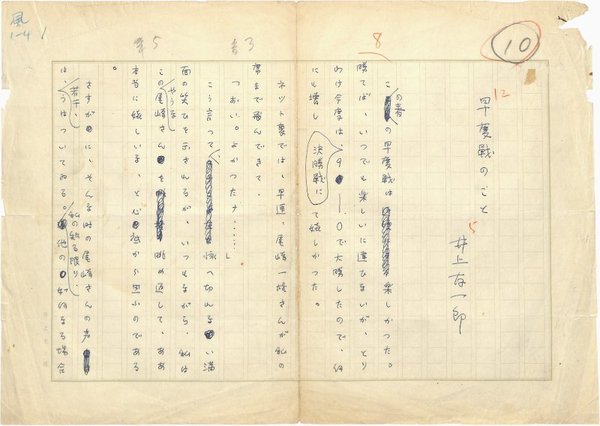 風
1-4
10
8
12
早慶戦のこと
5
井上友一郎
この春の早慶戦は楽しかつた。
勝てば、いつでも楽しいに違ひないが、とり
わけ今度は、決勝戦に9―0で大勝したので、何
にも増して嬉しかつた。
ネット裏では、早速、尾崎一雄さんが私の
席まで飛んできて、
つおい。よかつたナ……」
こう言つて
い満
面の笑ひを示されるが、いつもながら、私は
このやうな尾崎さんを眺め返して、ああ
本当に嬉しいな、と心底から思ふのである
。
さすがに、そんな時の尾崎さんの声
は、若干、うはついてゐる。私の知る限り、他の如何なる場合